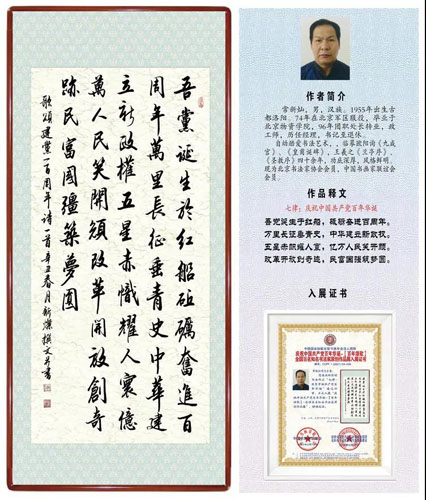 吾黨诞生於红船砥礪奮進百
周年萬里長征垂青史中華建
立新政權五星赤幟耀人寰億
萬人民笑開顏改革開放創奇
跡民富國疆築夢圆
歌頌建黨一百周年詩一首辛丑春月新燦撰文并書
作者简介
常新灿,男,汉族。1955年出生古
都洛阳。74年在北京军区服役,毕业于
北京物资学院,96年团职处长转业,政
工师,历任经理、书记至退休。
自幼酷爱书法艺术,、临摹欧阳询《九成
宫》、《皇甫诞碑》、王羲之《兰亭序》、
《圣教序》四十余年,功底深厚,风格鲜明。
现为北京书法家协会会员,中国书画家联谊会
会员。
作品释文
七律:庆祝中国共产党百年华诞
吾党诞生于红船,砥砺奋进百周年。
万里长征垂青史,中华建立新政权。
五星赤帜耀人寰,亿万人民笑开颜。
改革开放创奇迹,民富国强筑梦圆。
入展证书
庆祝中国共产党百年华诞